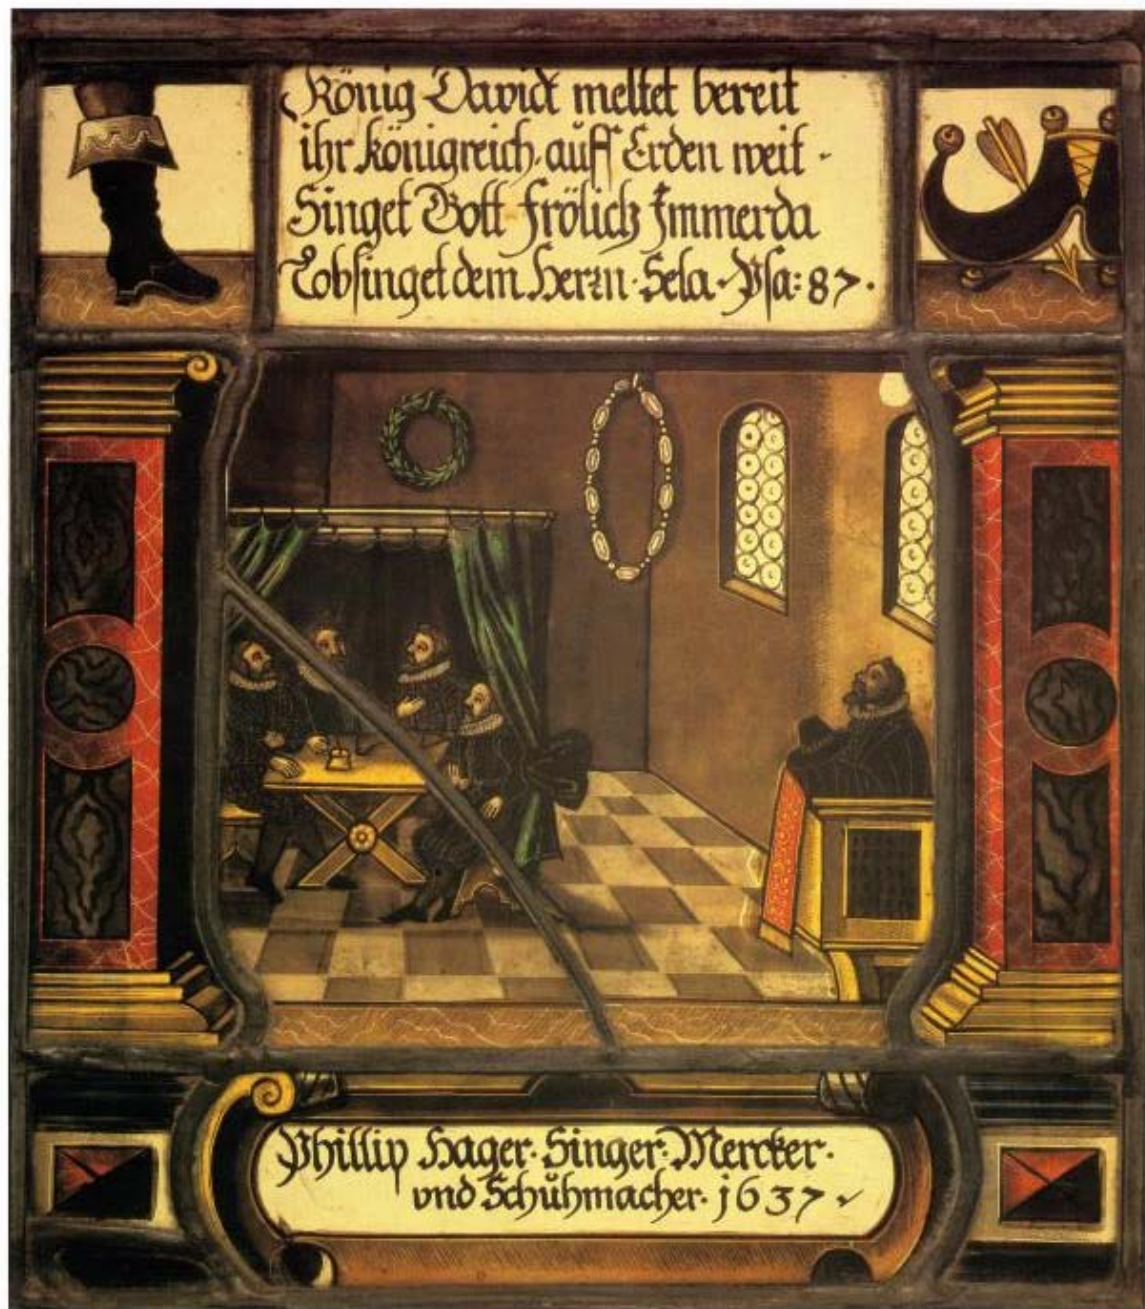 König David meltet bereit
ihr königreich auff Erden weit ·
Singet Gott frölich Immerda
Lobsinget dem Herrn · Sela · Psa: 87 ·
Phillip Hager · Singer · Mercker ·
vnd Schuhmacher · 1637 ·